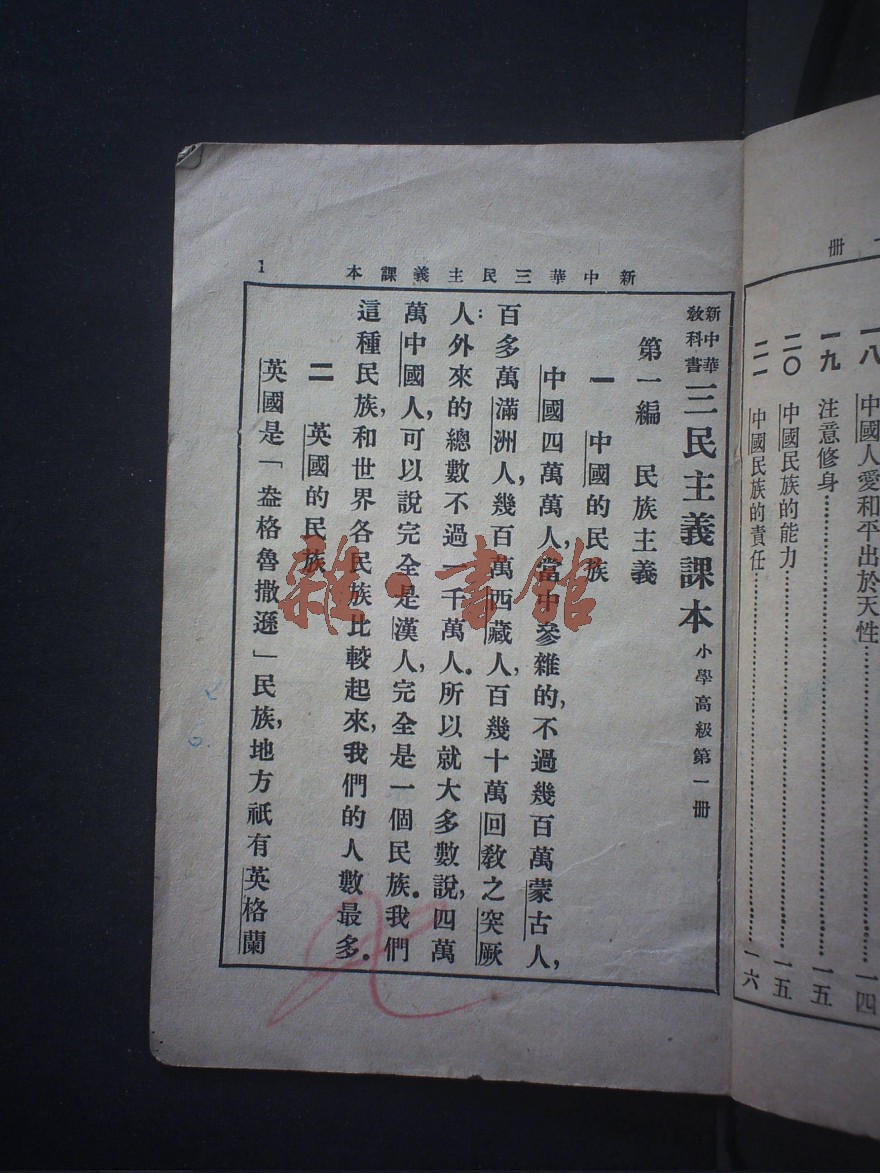 冊
一八 中國人愛和平出於天性……一四
一九 注意修身……一五
二〇 中國民族的能力……一五
二一 中國民族的責任……一六
新中華三民主義課本 1
新中華教科書 三民主義課本 小學高級第一冊
第一編 民族主義
一 中國的民族
中國四萬萬人,當中參雜的,不過幾百萬蒙古人,
百多萬滿洲人,幾百萬西藏人,百幾十萬回教之突厥
人:外來的總數不過一千萬人。所以就大多數說,四萬
萬中國人,可以說完全是漢人,完全是一個民族。我們
這種民族,和世界各民族比較起來,我們的人數最多。
二 英國的民族
英國是「盎格魯撒遜」民族,地方祇有英格蘭
雜·書館